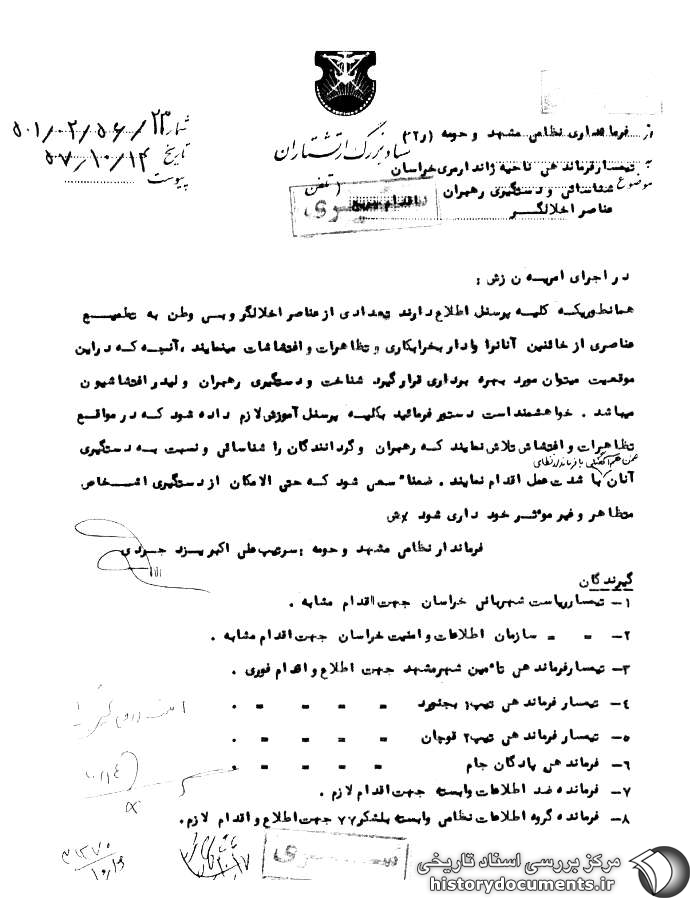 ستاد بزرگ ارتشتاران
شماره ۵۰۱/۰۲/۵۶/۲۳
تاریخ ۵۷/۱۰/۱۴
پیوست
از فرمانداری نظامی مشهد و حومه (ر۲۲)
به تیمسار فرماندهی ناحیه ژاندارمری خراسان
موضوع شناسائی و دستگیری رهبران
عناصر اخلالگر
(تلفن
اقدام سریع
سری
در اجرای امریه ن زش :
همانطوریکه کلیه پرسنل اطلاع دارند تعدادی از عناصر اخلالگر و بی وطن به تطمیع
عناصری از خائنین آنانرا وادار بخرابکاری و تظاهرات و اغتشاشات مینمایند ، آنچه که در این
موقعیت میتوان مورد بهره برداری قرار گیرد شناخت و دستگیری رهبران و لیدر اغتشاشیون
میباشد . خواهشمند است دستور فرمائید بکلیه پرسنل آموزش لازم داده شود که در مواقع
تظاهرات و اغتشاش تلاش نمایند که رهبران و گردانندگان را شناسائی و نسبت به دستگیری
ضمن هماهنگی با فرمانداری نظامی
آنان با شدت عمل اقدام نمایند . ضمنا" سعی شود که حتی الامکان از دستگیری اشخاص
متظاهر و غیر موثر خود داری شود
فرماندار نظامی مشهد و حومه : سرتیپ علی اکبر یزد جردی
گیرندگان
۱- تیمسار ریاست شهربانی خراسان جهت اقدام مشابه .
۲- " " سازمان اطلاعات و امنیت خراسان جهت اقدام مشابه .
۳- تیمسار فرماندهی تامین شهر مشهد جهت اطلاع و اقدام فوری .
۴- تیمسار فرماندهی تیپ۱ بجنورد " " " " .
۵- تیمسار فرماندهی تیپ۲ قوچان " " " " .
۶- فرماندهی پادگان جام " " " " .
۷- فرمانده ضد اطلاعات وابسته جهت اقدام لازم .
۸- فرمانده گروه اطلاعات نظامی وابسته بلشکر۷۷ جهت اطلاع و اقدام لازم.
۱۰/۱۴
۱۰/۱۷
سری
مرکز بررسی اسناد تاریخی
historydocuments.ir